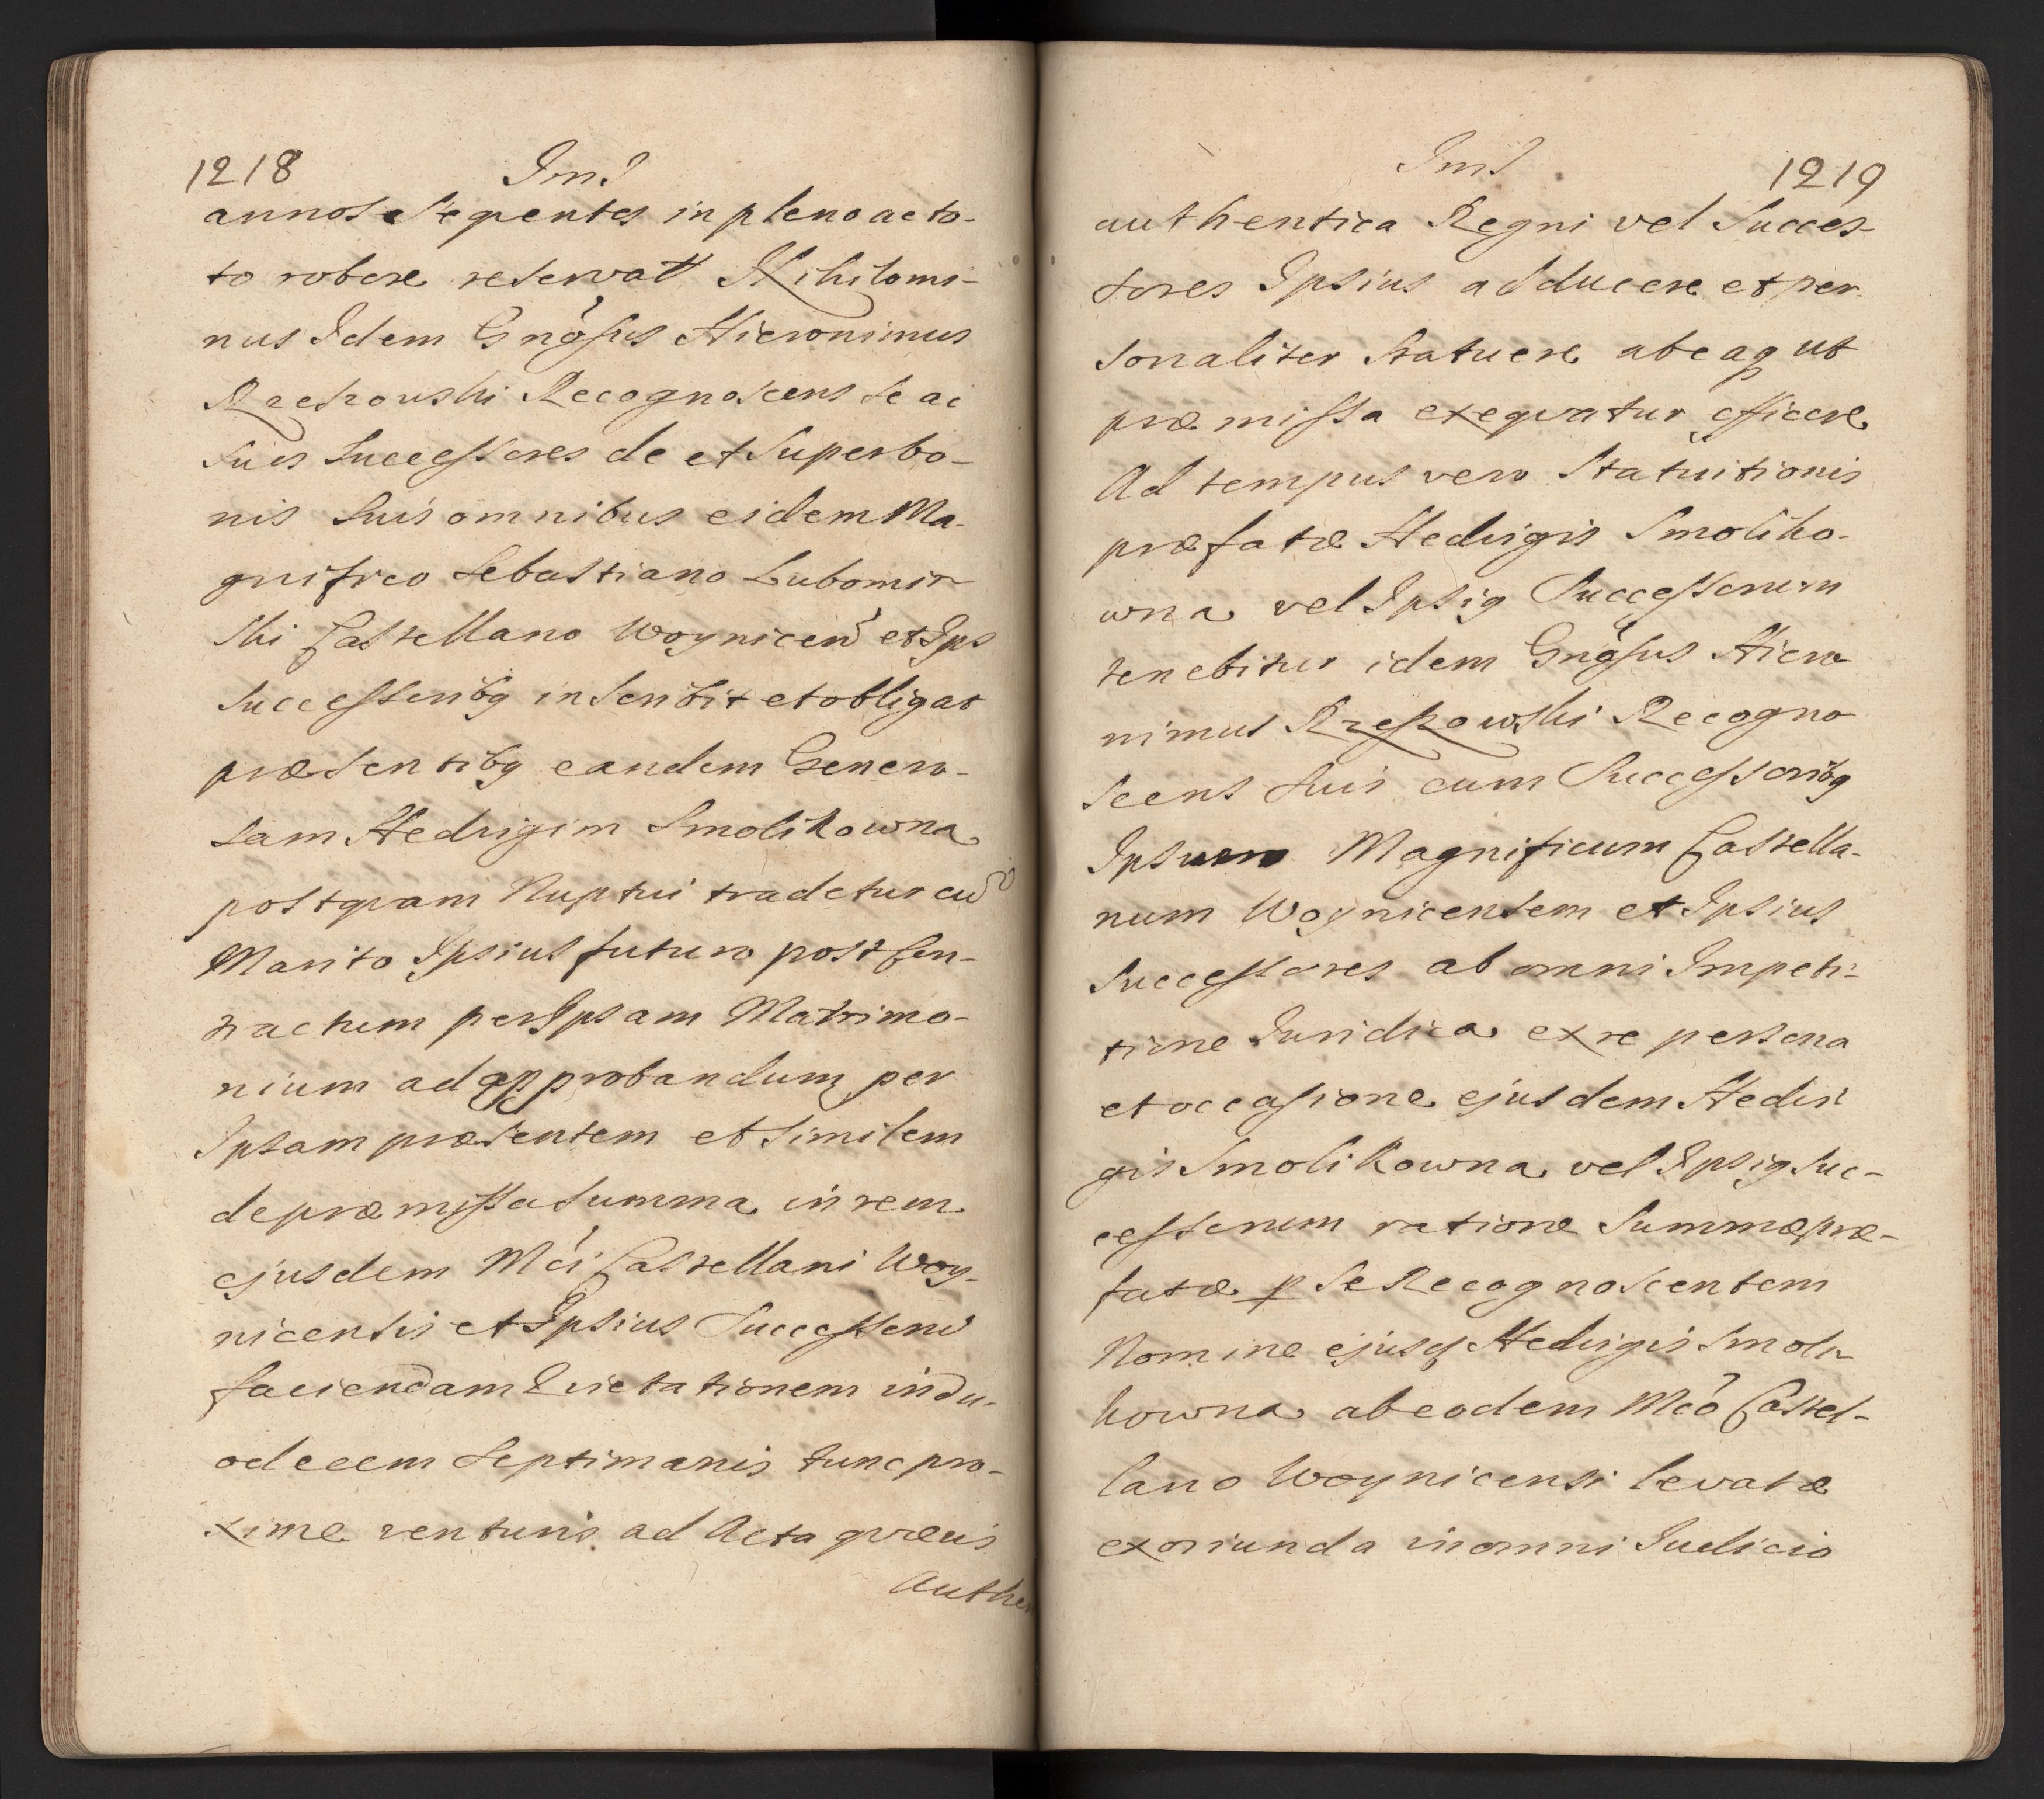 1218
annos Seqventes in pleno ac to-
to robore reservat Nihilomi-
nus Idem Gnõsus Hieronimus
Rzeszowski Recognoscens se ac
suos Successores de et Super bo-
nis Suis omnibus eidem Ma-
gnifico Sebastiano Lubomir
ski Castellano Woynicen̄ et Ips
Successorib9 inscribit et obligat
præsentib9 eandem Genero-
sam Hedvigim Smolikowna
postqvam Nuptui tradetur cū
Marito Ipsius futuro post Con-
tractum per Ipsam Matrimo-
nium ad approbandum per
Ipsam præsentem et similem
de præmissa summa in rem
ejusdem Mci Castellani Woy-
nicensis et Ipsius Successorū
faciendam Qvietationem in du-
odecem Septimanis tunc pro-
xime venturis ad Acta qvævis
Authen
1219
authentica Regni vel Succes-
sores Ipsius adducere et per-
sonaliter Statuere atq ut
præmissa exeqvatur efficere
Ad tempus vero Statuitionis
præfatæ Hedvigis Smoliko-
wna vel Ipsi9 Successorum
tenebitur idem Gnõsus Hiero
nimus Rzeszowski Recogno
scens Suis cum Successorib9
Ipsum Magnificum Castella-
num Woynicensem et Ipsius
Successores ab omni Impeti-
tione Iuridica ex re persona
et occasione ejusdem Hedvi
gis Smolikowna vel Ipsi9 Suc-
cessorum ratione Summæ præ-
fatæ p Se Recognoscentem
Nomine ejusd Hedvigis Smoli-
kowna ab eodem Mco Castel-
lano Woynicensi levatæ
exoriunda in omni Iudicio